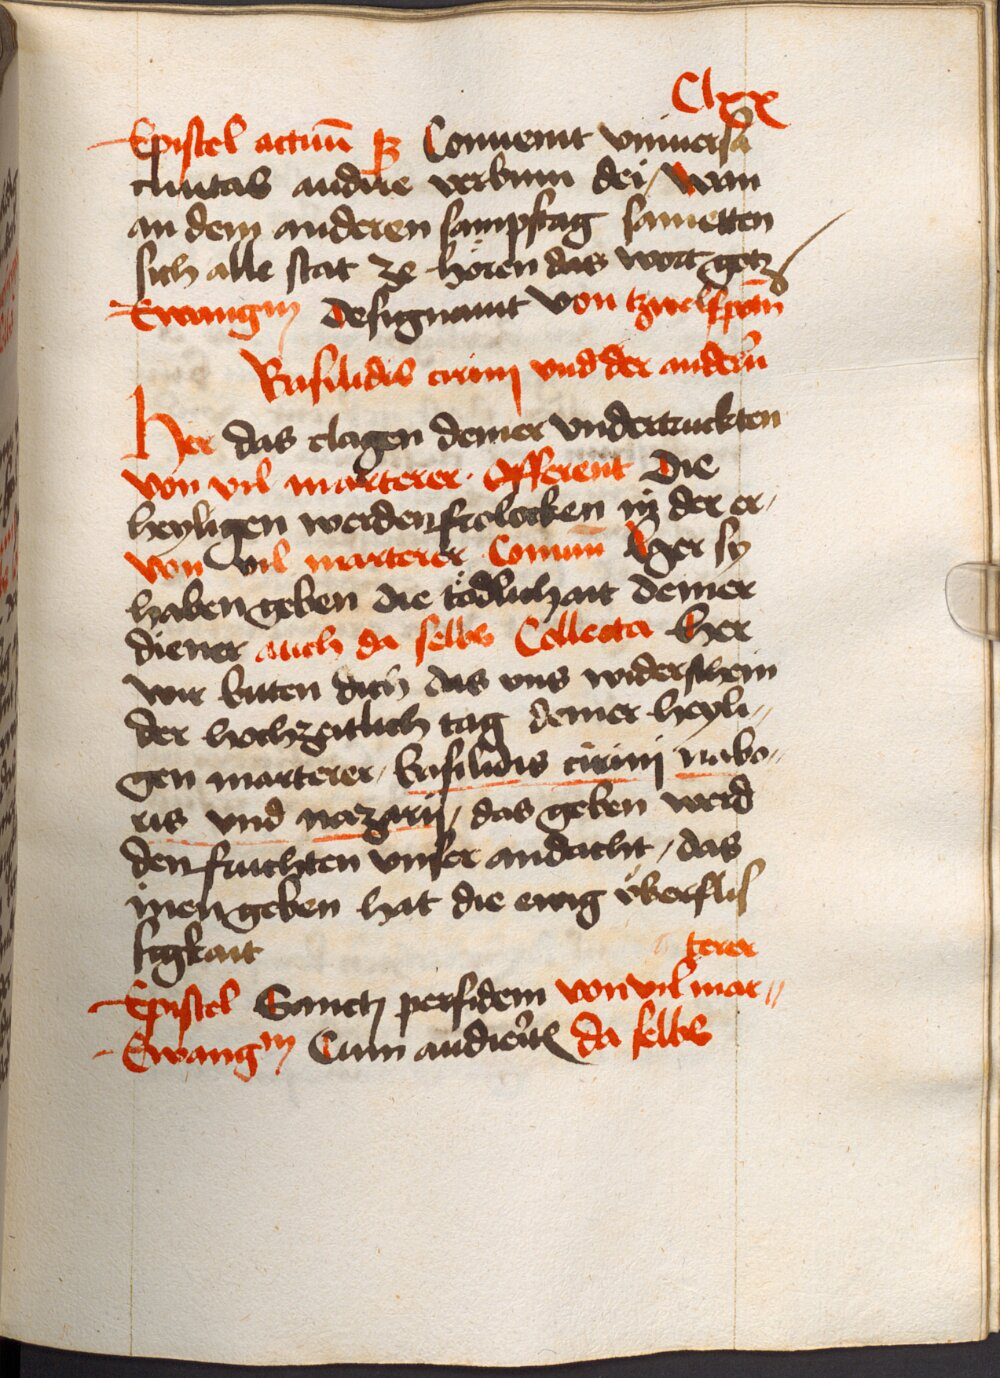 Clxx
Epistel actuū xiii Conuenit vniuersa
ciuitas audire verbum dei / wan
an dem anderen sampstag sametten
sich alle stat ze hören das wort gotz
Ewangm̄ Designauit von tzwelfpotn̄
Basilidis cirini vnd der andern̄
Her das clagen deiner vndertruckten
von vil marterer . Offerent Die
heyligen werden frolocken in der er⸗
von vil marterer Comun̄ Her sy
haben geben die tödlichait deiner
diener auch da selbs Collecta Her
wir bitten dich das vns widerschein
der hochzeitlich tag deiner heyli⸗
gen marterer / basilidis cirini nabo⸗
ris vnd nazarij / das geben werd
den fruchten vnser andacht / das
inen geben hat die ewig überflis
sigkait
terer
Epistel Sancti per fidem von vil mar⸗
Ewangm̄ Cum audieritis da selbs